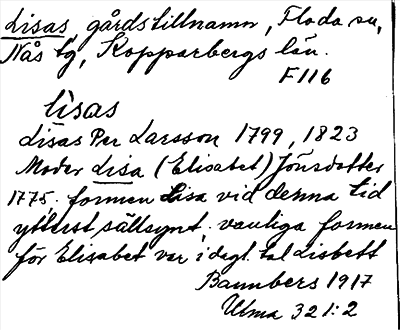 Lisas gårdstillnamn, Floda sn,
Nås tg, Kopparbergs län.
F116
lisas
Lisas Per Larsson 1799, 1823
Moder Lisa (Elisabet) Jönsdotter
1775. formen Lisa vid denna tid
ytterst sällsynt; vanliga formen
för Elisabet var i dagl. tal Lisbett
Bannbers 1917
Ulma 321:2